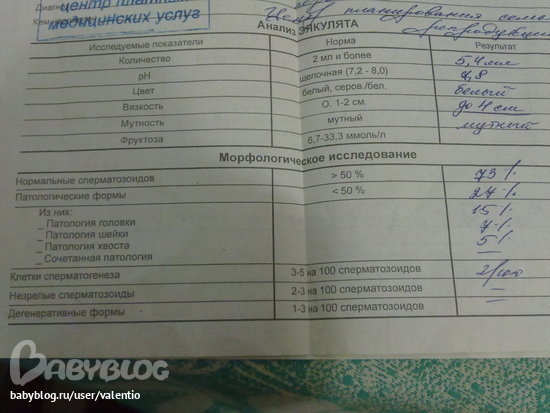 Диагноз
центр платных
медицинских услуг
Центр планирования семьи
Кем
репродукции
Анализ ЭЯКУЛЯТА
Исследуемые показатели Норма Результат
Количество 2 мл и более 5,4 мл
pH щелочная (7,2 - 8,0) 7,8
Цвет белый, серов./бел. белый
Вязкость О. 1-2 см. до 4 см
Мутность мутный мутный
Фруктоза 6,7-33,3 ммоль/л
Морфологическое исследование
Нормальные сперматозоидов > 50 % 73 %
Патологические формы < 50 % 27 %
Из них:
_ Патология головки 15 %
_ Патология шейки 7 %
_ Патология хвоста 5 %
_ Сочетанная патология —
Клетки сперматогенеза 3-5 на 100 сперматозоидов 2/100
Незрелые сперматозоиды 2-3 на 100 сперматозоидов —
Дегенеративные формы 1-3 на 100 сперматозоидов —
BABYBLOG
babyblog.ru/user/valentio